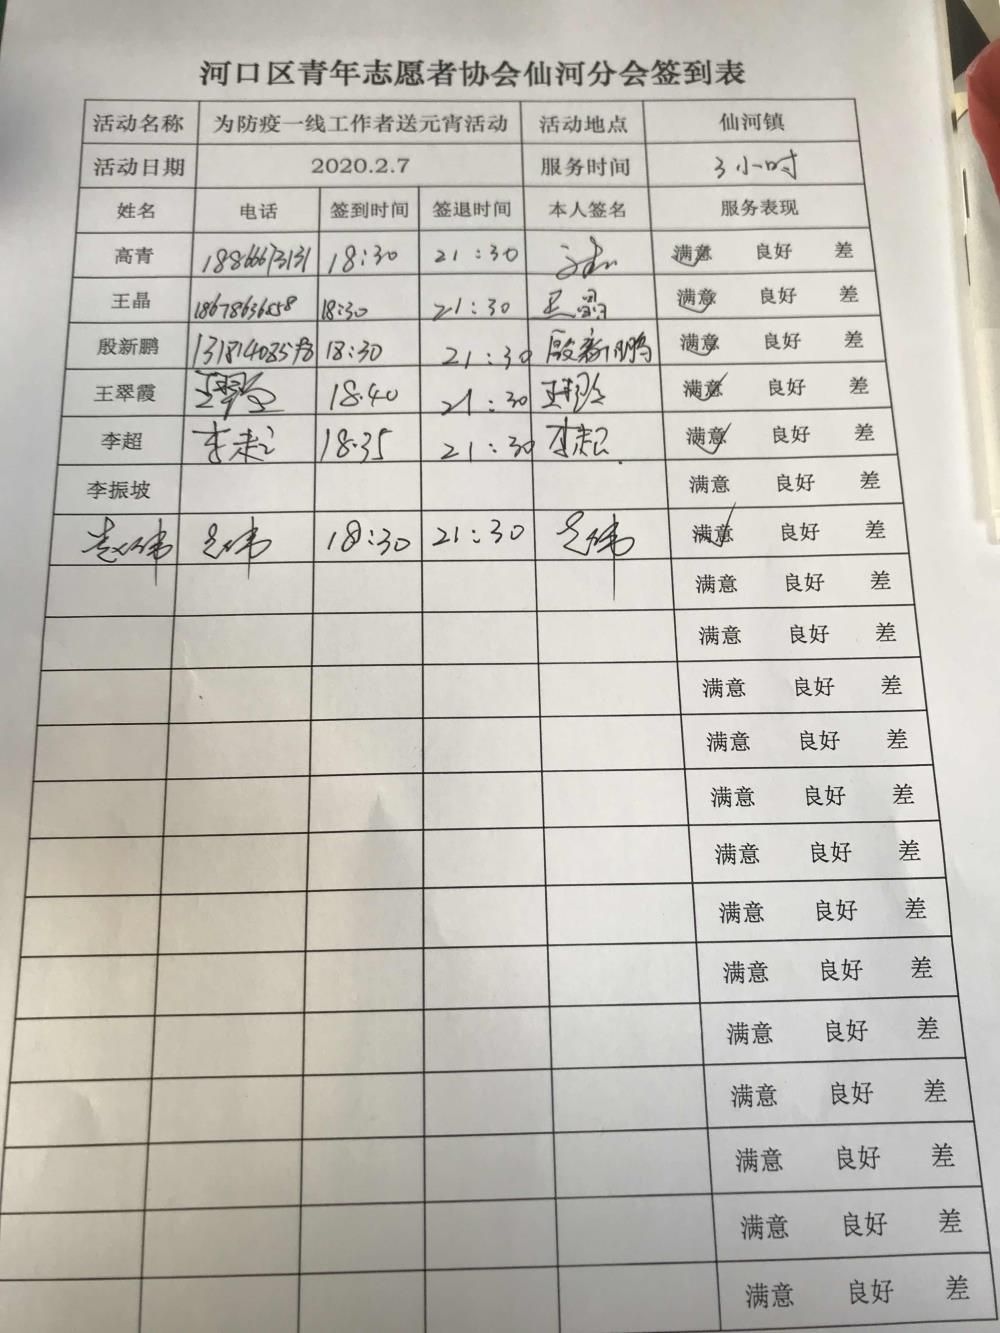 河口区青年志愿者协会仙河分会签到表
活动名称 为防疫一线工作者送元宵活动 活动地点 仙河镇
活动日期 2020.2.7 服务时间 3小时
姓名 电话 签到时间 签退时间 本人签名 服务表现
高青 18866673131 18:30 21:30 满意 良好 差
王晶 18678636858 18:30 21:30 王晶 满意 良好 差
殷新鹏 18:30 21:30 殷新鹏 满意 良好 差
王翠霞 18.40 21:30 满意 良好 差
李超 李超 18.35 21:30 李超 满意 良好 差
李振坡 满意 良好 差
18:30 21:30 满意 良好 差
满意 良好 差
满意 良好 差
满意 良好 差
满意 良好 差
满意 良好 差
满意 良好 差
满意 良好 差
满意 良好 差
满意 良好 差
满意 良好 差
满意 良好 差
满意 良好 差
满意 良好 差